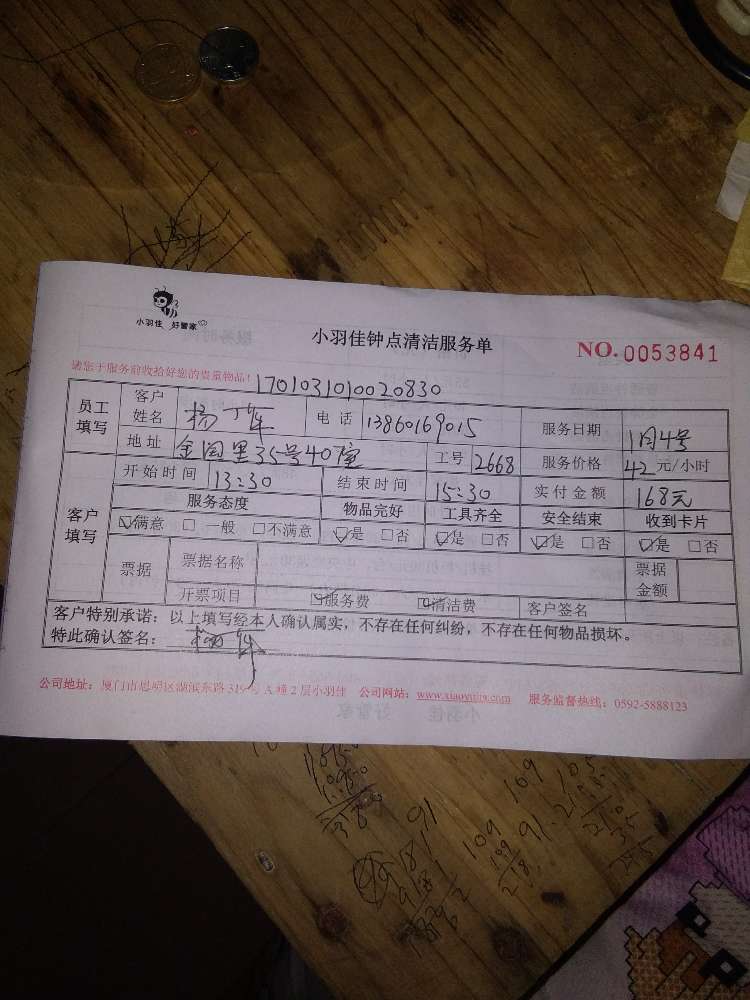 小羽佳 好管家
小羽佳钟点清洁服务单
NO. 0053841
请您于服务前收拾好您的贵重物品!
1701031010020830
员工填写 客户姓名 杨 电话 13860169015 服务日期 1月4号
地址 金国里35号40 工号 2668 服务价格 42元/小时
客户填写 开始时间 13:30 结束时间 15:30 实付金额 168元
服务态度 物品完好 工具齐全 安全结束 收到卡片
☑满意 □一般 □不满意 ☑是 □否 ☑是 □否 ☑是 □否 ☑是 □否
票据 票据名称 票据金额
开票项目 ☑服务费 ☑清洁费 客户签名
客户特别承诺：以上填写经本人确认属实，不存在任何纠纷，不存在任何物品损坏。
特此确认签名：
公司地址：厦门市思明区湖滨东路319号A幢2层小羽佳 公司网站：www.xiaoyujia.com 服务监督热线：0592-5888123
91
109
109
91
105